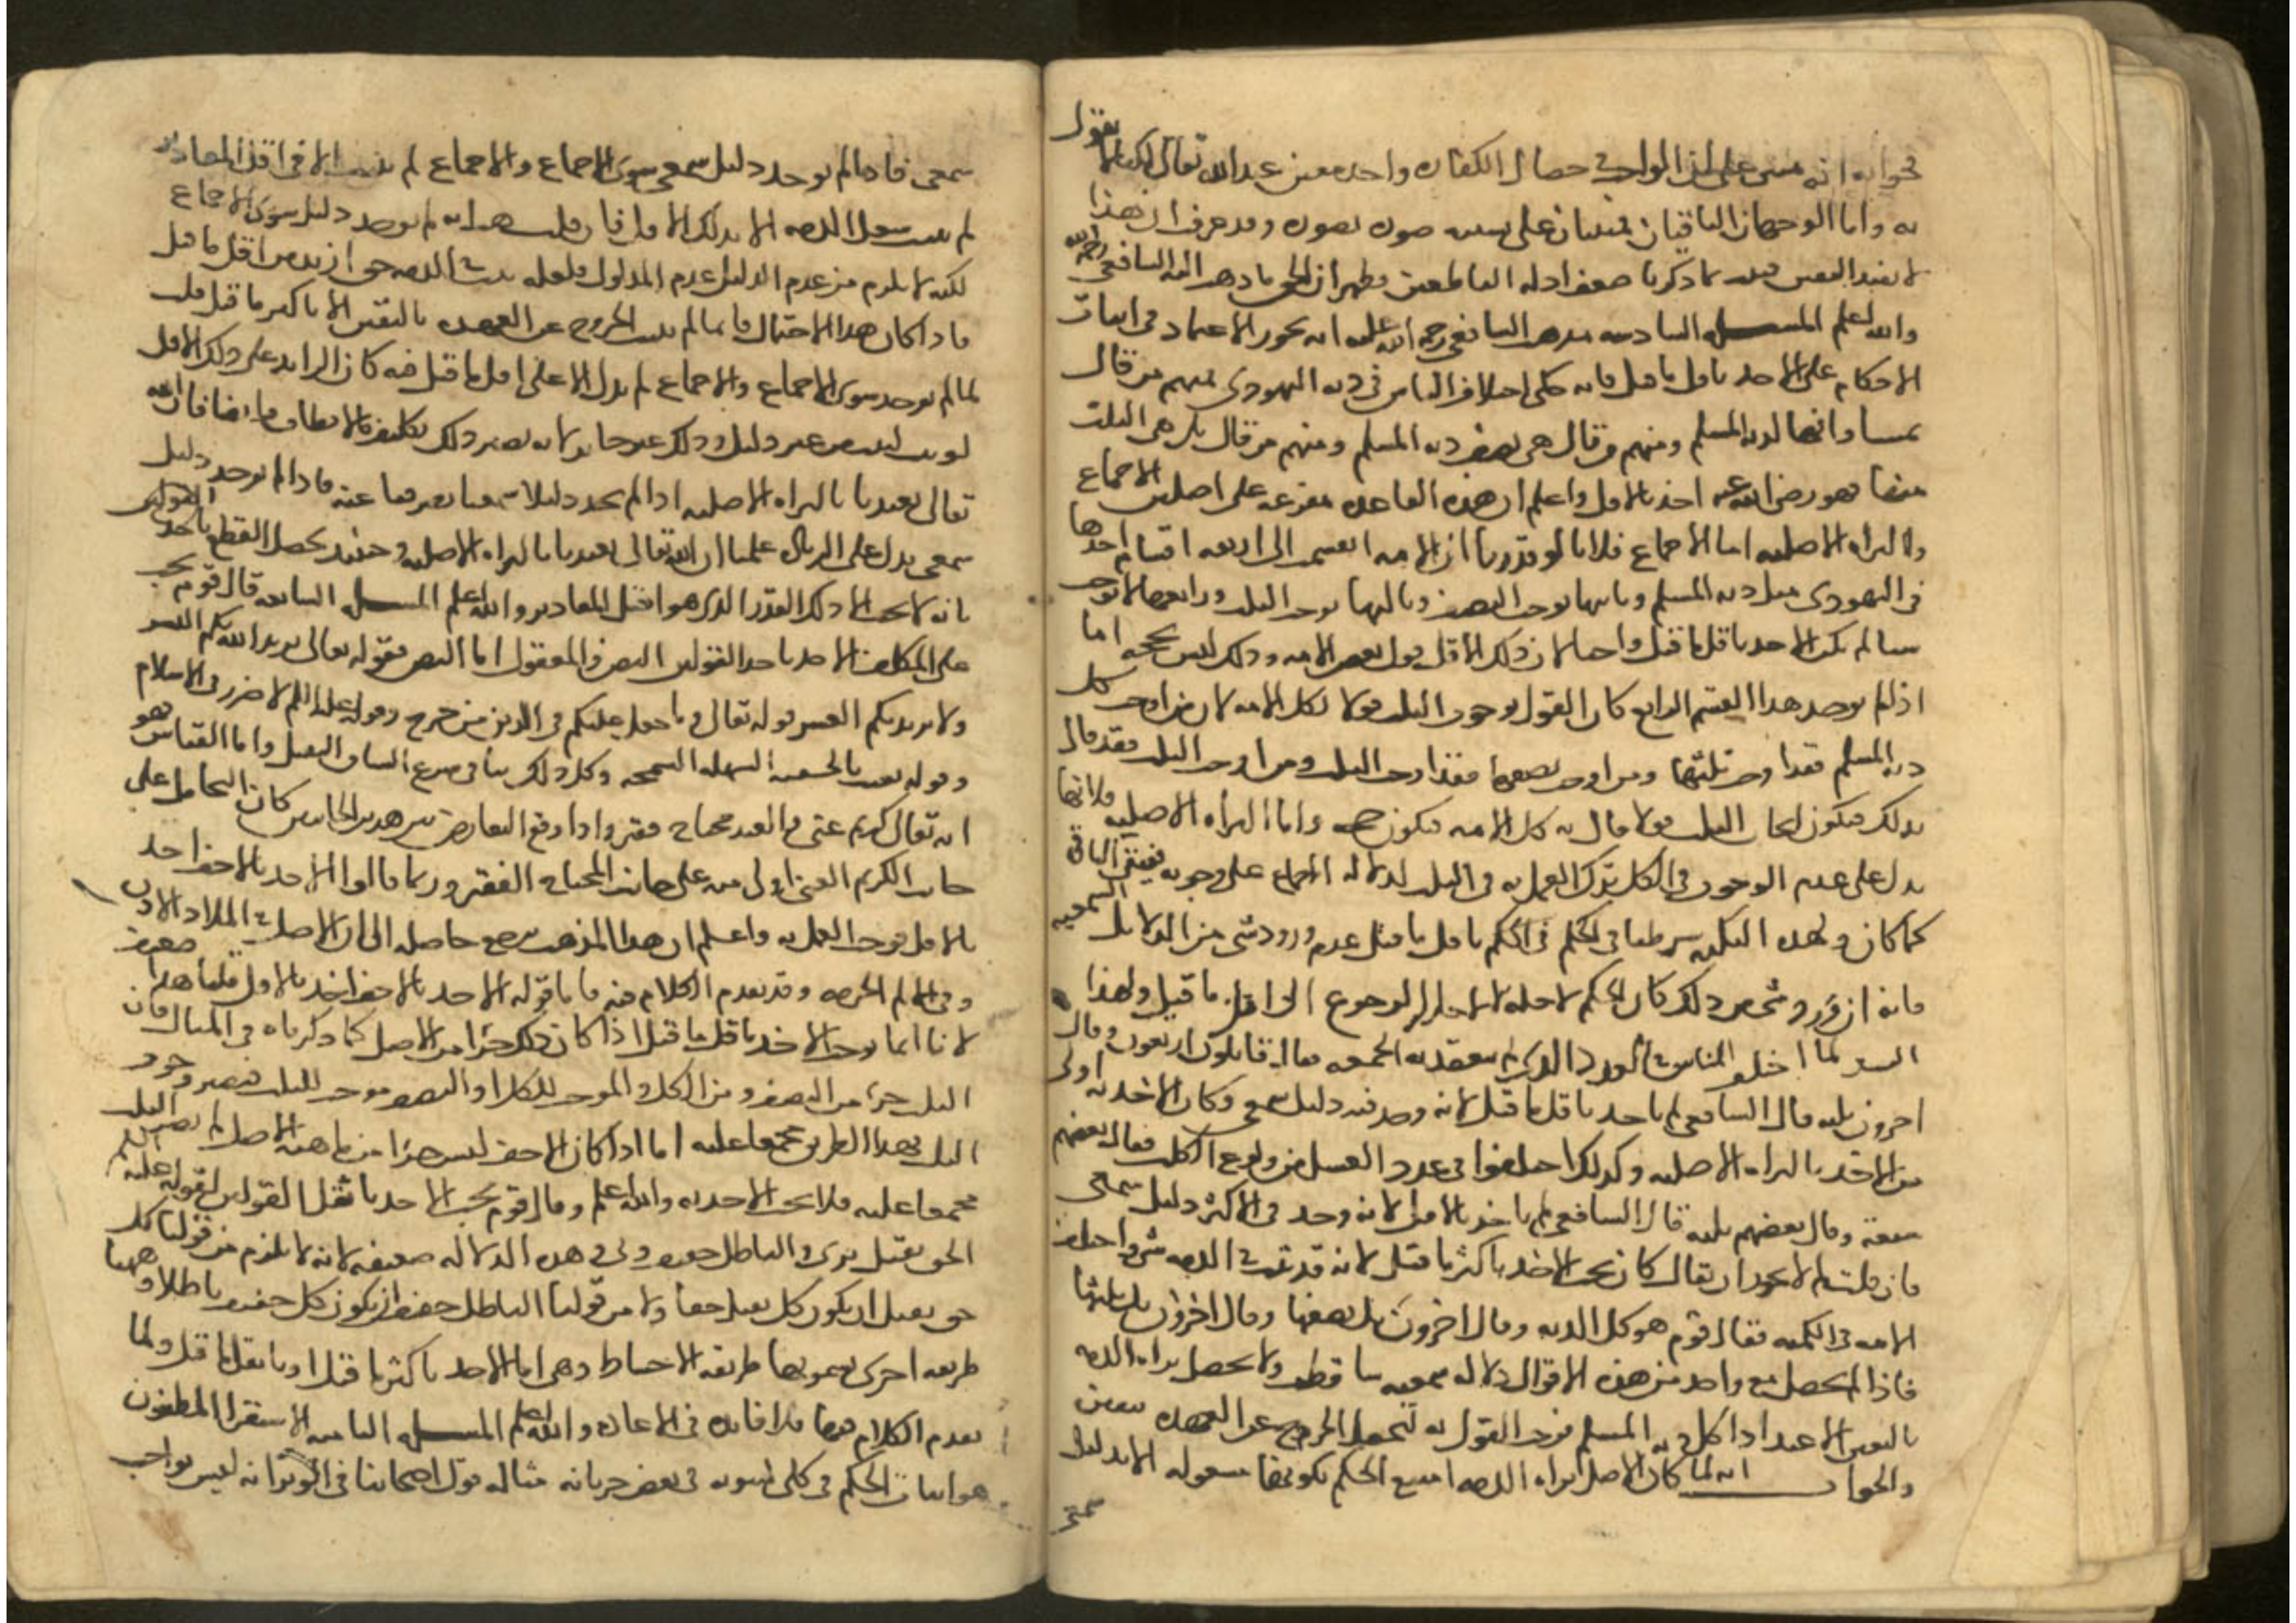 فجوابه انه مبنى على ان الواجب فى خصال الكفاره واحد معين عند الله تعالى لكنا لا نقول
به واما الوجهان الباقيان فمبنيان على صوره صوره وقد عرف ان هذا
لا يفيد اليقين فيما ذكرنا ضعف ادله القاطعين وظهر ان الحق ما ذهب اليه الشافعى رحمه الله
والله اعلم المسله السادسه مذهب الشافعى رحمه الله عليه انه يجوز الاعتماد فى اثبات
الاحكام على الاخذ باقل ما قيل فانه حكى اختلاف الناس فى ديه اليهودى فمنهم من قال
بمساواتها لديه المسلم ومنهم من قال هى نصف ديه المسلم ومنهم من قال بل هى الثلث
منها فهو رضى الله عنه اخذ بالاقل واعلم ان هذه القاعده مفرعه على اصلين الاجماع
والبراه الاصليه اما الاجماع فلانا لو قدرنا ان الامه انقسمت الى اربعه اقسام احدها
فى اليهودى مثل ديه المسلم وثانيها يوجب النصف وثالثها يوجب الثلث ورابعها لا يوجب
شيا لم يكن الاخذ باقل ما قيل واجبا لان ذلك الاقل قول بعض الامه وذلك ليس بحجه اما
اذا لم يوجد هذا القسم الرابع كان القول بوجوب الثلث قولا لكل الامه لان من اوجب كل
ديه المسلم فقد اوجب ثلثها ومن اوجب نصفها فقد اوجب الثلث ومن اوجب الثلث فقد قال
بذلك فيكون ايجاب الثلث قولا قال به كل الامه فيكون حجه واما البراه الاصليه فلانها
تدل على عدم الوجوب فى الكل ترك العمل به فى الثلث لدلاله الاجماع على وجوبه فيبقى الباقى
كما كان ولهذه النكته شرطنا فى الحكم باقل ما قيل عدم ورود شى من الدلايل السمعيه
فانه ان ورد شى من ذلك كان الحكم لاجله لا لاجل الرجوع الى اقل ما قيل ولهذا
السر لما اختلف الناس فى العدد الذى تنعقد به الجمعه فقال قايلون اربعون وقال
اخرون ثلثه قال الشافعى لم ياخذ باقل ما قيل لانه وجد فيه دليل سمعى وكان الاخذ به اولى
من الاخذ بالبراه الاصليه وكذلك اختلفوا فى عدد الغسل من ولوغ الكلب فقال بعضهم
سبعة وقال بعضهم ثلثه قال الشافعى لم ياخذ بالاقل لانه وجد فى الاكثر دليل سمعى
فان قلت لم لا يجوز ان يقال كان يجب الاخذ باكثر ما قيل لانه قد ثبت فى الذمه شى واختلف
الامه فى الكميه فقال قوم هو كل الديه وقال اخرون بل نصفها وقال اخرون بل ثلثها
فاذا لم يحصل مع واحد من هذه الاقوال دلاله سمعيه تساقطت ولا تحصل براه الذمه
باليقين الا عند اداكل ديه المسلم فوجب القول به ليحصل الخروج عن العهده بيقين
والجواب انه لما كان الاصل براه الذمه امتنع الحكم بكونها مشغوله الا بدليل
سمعى
سمعى فاذا لم يوجد دليل سمعى سوى الاجماع والاجماع لم يثبت الا فى اقل المقادير
لم يثبت شغل الذمه الا بذلك الاقل فان قلت هب انه لم يوجد دليل سوى الاجماع
لكنه لا يلزم من عدم الدليل عدم المدلول فلعله ثبت فى الذمه حق ازيد من اقل ما قيل
فاذا كان هذا الاحتمال قايما لم يثبت الخروج عن العهده باليقين الا باكثر ما قيل قلت
لما لم يوجد سوى الاجماع والاجماع لم يدل الا على اقل ما قيل فيه كان الزايد على ذلك الاقل
لو ثبت لثبت من غير دليل وذلك غير جايز لانه يصير ذلك تكليف ما لا يطاق وايضا فان الله
تعالى تعبدنا بالبراه الاصليه اذا لم نجد دليلا سمعيا يصرفنا عنه فاذا لم يوجد دليل
سمعى يدل على الزياده علمنا ان الله تعالى تعبدنا بالبراه الاصليه وحينئذ يحصل القطع
بانه لا يجب الا ذلك القدر الذى هو اقل المقادير والله اعلم المسله السابعه قال قوم يجب
على المكلف الاخذ باخف القولين النص والمعقول اما النص فقوله تعالى يريد الله بكم اليسر
ولا يريد بكم العسر قوله تعالى وما جعل عليكم فى الدين من حرج وقوله عليه السلم لا ضرر فى الاسلام
وقوله بعثت بالحنيفيه السهله السمحه وكل ذلك ينافى شرع الشاق الثقيل واما القياس فهو
انه تعالى كريم غنى والعبد محتاج فقير واذا وقع التعارض بين هذين الجانبين كان التحامل على
جانب الكريم الغنى اولى منه على جانب المحتاج الفقير وربما قالوا الاخذ بالاخف اخذ
بالاقل فوجب العمل به واعلم ان هذا المذهب يرجع حاصله الى ان الاصل فى الملاذ الاذن
وفى الالم الحرمه وقد تقدم الكلام فيه فاما قوله الاخذ بالاخف اخذ بالاقل قلنا هذا ضعيف
لانا انما نوجب الاخذ باقل ما قيل اذا كان ذلك جزا من الاصل كما ذكرناه فى المثال فان
الثلث جزء من النصف ومن الكل والموجب للكل او النصف موجب للثلث فيصير وجوب
الثلث بهذا الطريق مجمعا عليه اما اذا كان الاخف ليس جزا من ماهيه الاصل لم يصر
مجمعا عليه فلا يجب الاخذ به والله اعلم وقال قوم يجب الاخذ باثقل القولين لقوله عليه السلم
الحق ثقيل مرى والباطل خفيف وبى وهذه الدلاله ضعيفه لانه لا يلزم من قولنا كل
حق ثقيل ان يكون كل ثقيل حقا ولا من قولنا الباطل خفيف ان يكون كل خفيف باطلا وههنا
طريقه اخرى يسمونها طريقه الاحتياط وهى اما الاخذ باكثر ما قيل او باثقل ما قيل ولما
تقدم الكلام فيها فلا فايده فى الاعاده والله اعلم المسله الثامنه الاستقرا المظنون
هو اثبات الحكم فى كلى لثبوته فى بعض جزياته مثاله قول اصحابنا فى الوتر انه ليس بواجب